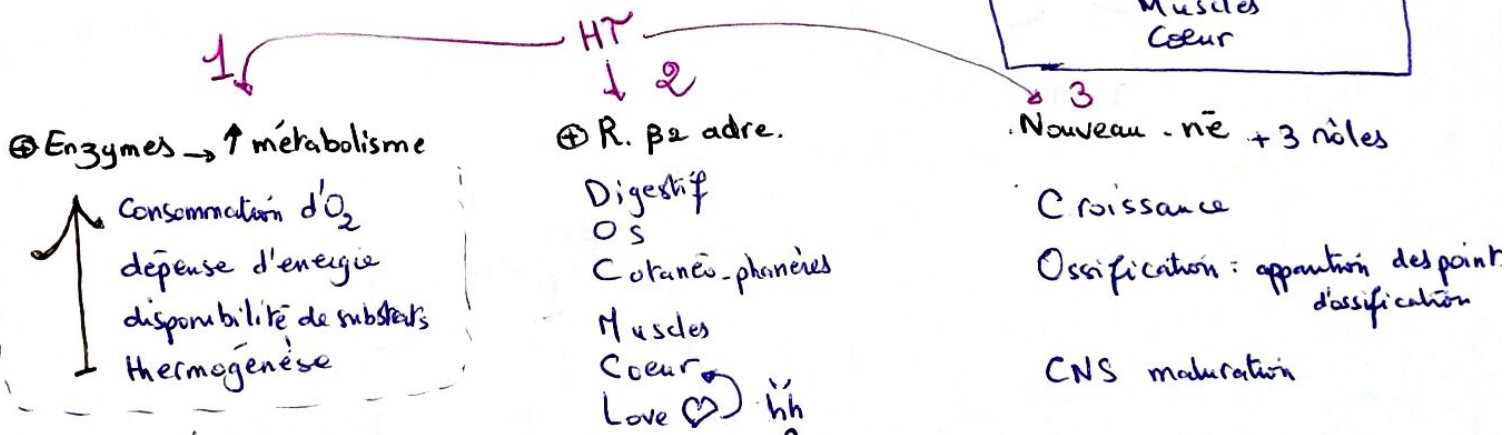 Muscles
Coeur
HT
1
2
3
⊕ Enzymes → ↑ métabolisme
Consommation d'O₂
dépense d'energie
disponibilité de substrats
thermogénèse
⊕ R. β2 adre.
Digestif
Os
Cutanéo-phanères
Muscles
Coeur
Love ♡ hh
Nouveau-né + 3 rôles
Croissance
Ossification : apparition des point
d'ossification
CNS maturation